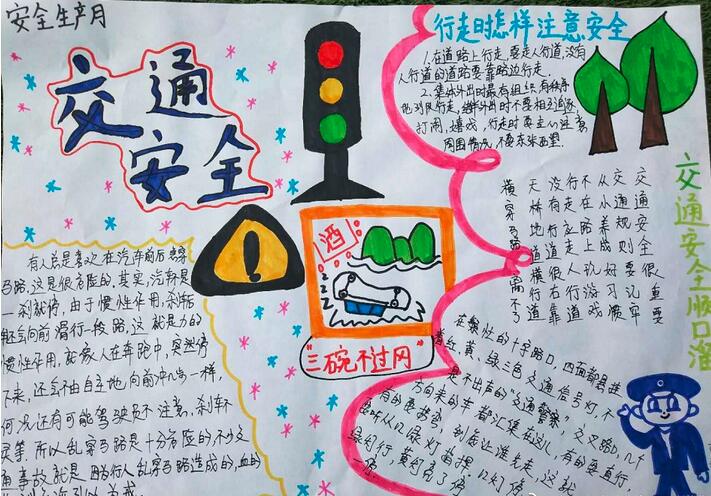 安全生产月
交通
安全
行走时怎样注意安全
1.在道路上行走,要走人行道,没有
人行道的道路要靠路边行走.
2.集体外出时最有组织有秩序
地列队行走,结伴外出时不要相互追逐,
打闹、嬉戏,行走时要专心注意
周围情况,不要东张西望.
交通安全顺口溜
交通安全很重要
交通规则要牢记
从小养成好习惯
不在路上玩游戏
行走应走人行道
没有行道往右靠
天桥地道横行道
横穿马路离不了
酒
"三碗不过冈"
有人总是喜欢在汽车前后穿
马路,这是很危险的,其实,汽车是
一刹就停,由于惯性作用,刹车
还会向前滑行一段路,这就是力的
惯性作用,就像人在奔跑中,突然停
下来,还会不由自主地向前冲几步一样,
何况还有可能驾驶员不注意,刹车不
灵等,所以乱穿马路是十分危险的,不少交
通事故就是因为行人乱穿马路造成的,血的
在繁忙的十字路口,四面都悬挂
着红、黄、绿三色交通信号灯,不
是不出声的"交通警察",交叉路口,几个
方向来的车都汇集在这儿,有的要直行,
有的要拐弯,到底让谁先走,这就
听从红绿灯指挥,红灯停
绿灯行,黄灯亮了停
一停.